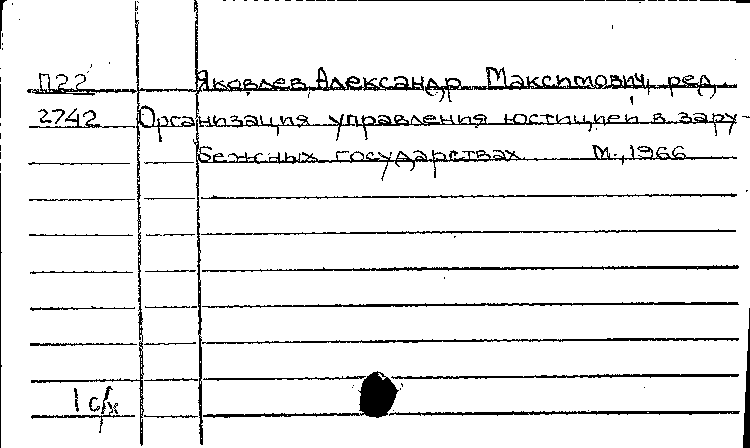 П22 Яковлев, Александр Максимович, ред.
2742 Организация управления юстицией в зару-
бежных государствах М., 1966
1 с/х